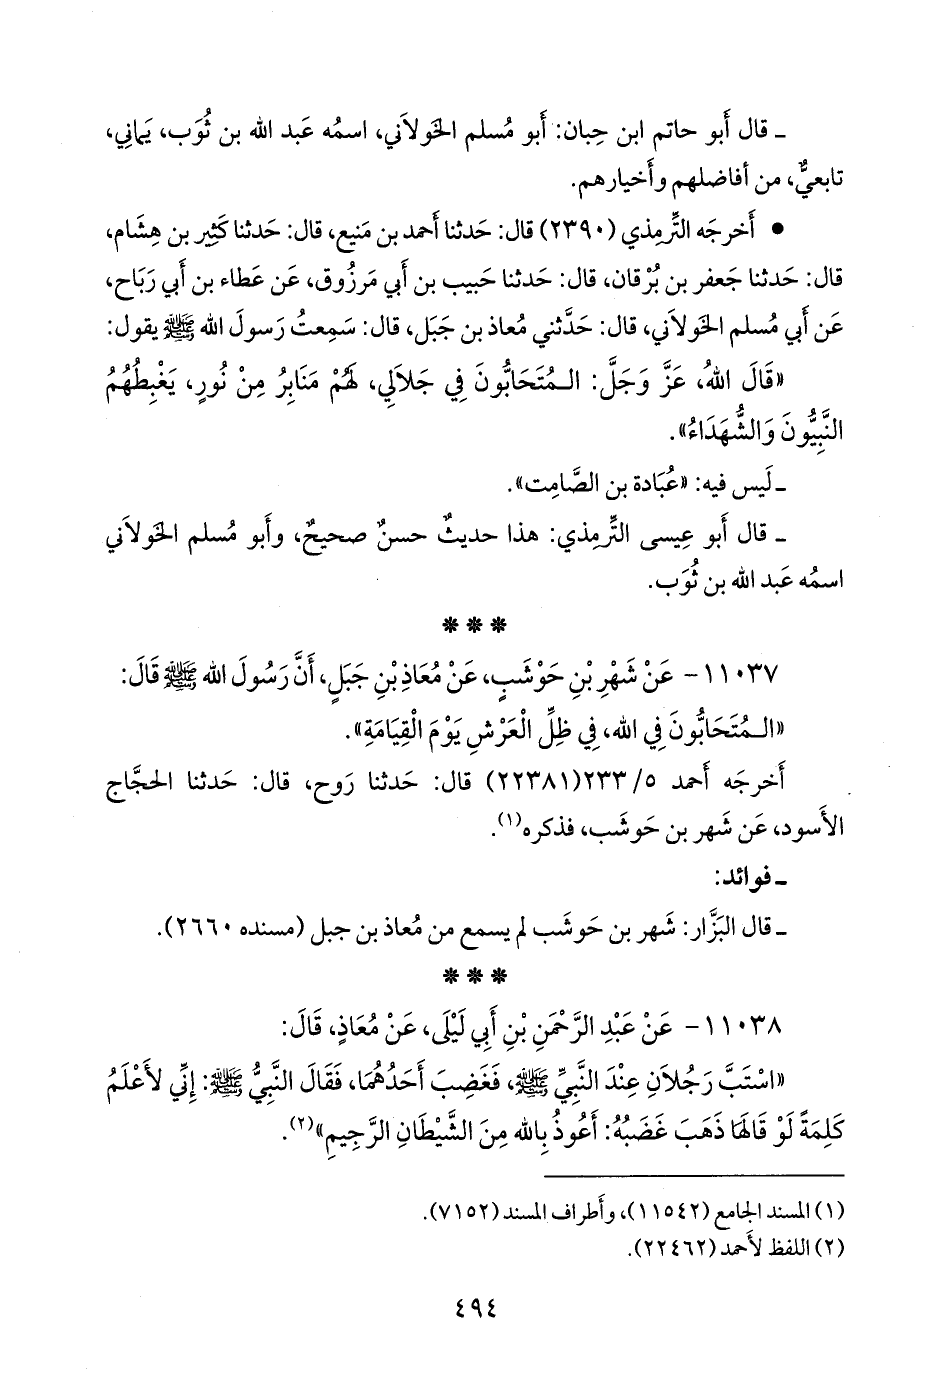 ـ قال أَبو حاتم ابن حِبان: أَبو مُسلم الخَولاَني، اسمُه عَبد الله بن ثُوَب، يَماني،
تابعيٌّ، من أفاضلهم وأَخيارهم.
• أَخرجَه التِّرمِذي (٢٣٩٠) قال: حَدثنا أَحمد بن مَنيع، قال: حَدثنا كَثِير بن هِشَام،
قال: حَدثنا جَعفر بن بُرْقان، قال: حَدثنا حَبيب بن أَبي مَرزُوق، عَن عَطاء بن أَبي رَبَاح،
عَن أَبي مُسلم الخَولاَني، قال: حَدَّثني مُعاذ بن جَبَل، قال: سَمِعتُ رَسولَ الله ﷺ يقول:
«قَالَ اللهُ، عَزَّ وَجَلَّ: الـمُتَحَابُّونَ فِي جَلاَلِي، لَهُمْ مَنَابِرُ مِنْ نُورٍ، يَغْبِطُهُمُ
النَّبِيُّونَ وَالشُّهَدَاءُ».
ـ لَيس فيه: «عُبَادة بن الصَّامِت».
ـ قال أَبو عِيسى التِّرمِذي: هذا حديثٌ حسنٌ صحيحٌ، وأَبو مُسلم الخَولاَني
اسمُه عَبد الله بن ثُوَب.
* * *
١١٠٣٧ - عَنْ شَهْرِ بْنِ حَوْشَبٍ، عَنْ مُعَاذِ بْنِ جَبَلٍ، أَنَّ رَسُولَ الله ﷺ قَالَ:
«الـمُتَحَابُّونَ فِي الله، فِي ظِلِّ الْعَرْشِ يَوْمَ الْقِيَامَةِ».
أَخرجَه أَحمد ٥/ ٢٣٣(٢٢٣٨١) قال: حَدثنا رَوح، قال: حَدثنا الحَجَّاج
الأَسود، عَن شَهر بن حَوشَب، فذكره(١).
ـ فوائد:
ـ قال البَزَّار: شَهر بن حَوشَب لم يسمع من مُعاذ بن جبل (مسنده ٢٦٦٠).
* * *
١١٠٣٨ - عَنْ عَبْدِ الرَّحْمَنِ بْنِ أَبِي لَيْلَى، عَنْ مُعَاذٍ، قَالَ:
«اسْتَبَّ رَجُلاَنِ عِنْدَ النَّبِيِّ ﷺ، فَغَضِبَ أَحَدُهُمَا، فَقَالَ النَّبِيُّ ﷺ: إِنِّي لأَعْلَمُ
كَلِمَةً لَوْ قَالَهَا ذَهَبَ غَضَبُهُ: أَعُوذُ بِالله مِنَ الشَّيْطَانِ الرَّجِيمِ»(٢).
(١) المسند الجامع (١١٥٤٢)، وأَطراف المسند (٧١٥٢).
(٢) اللفظ لأَحمد (٢٢٤٦٢).
٤٩٤